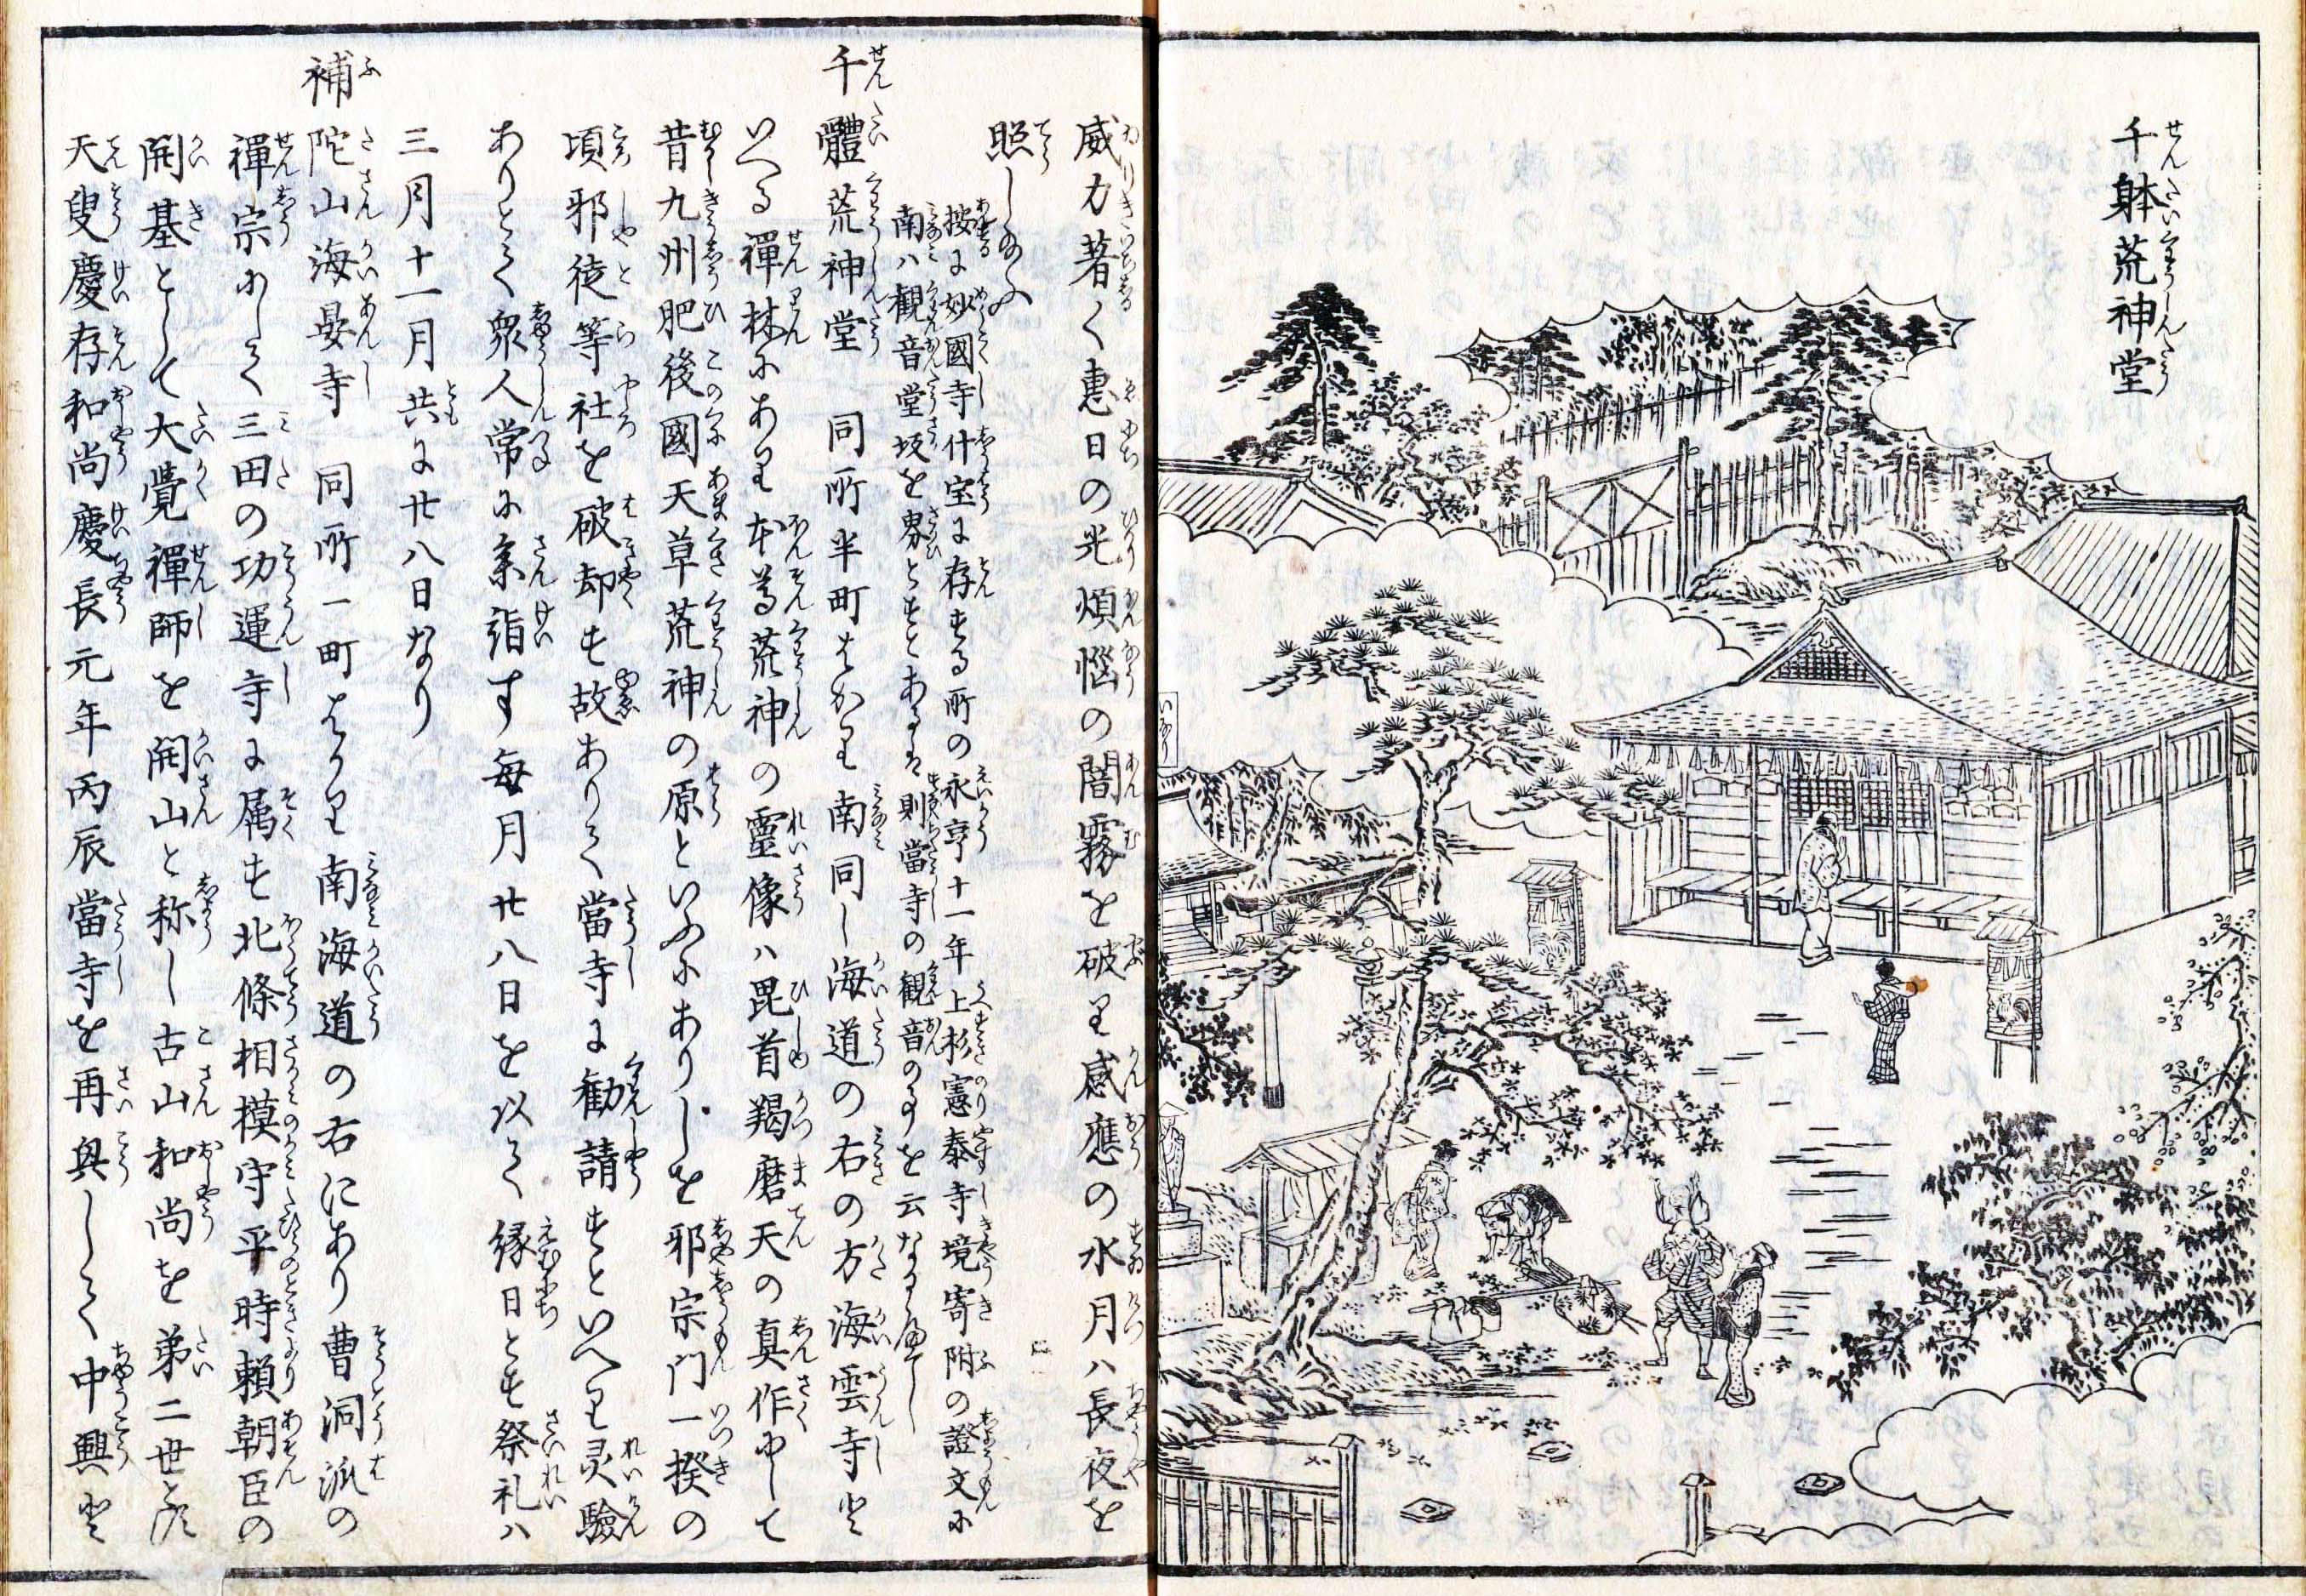 千躰荒神堂
いなり
威力著く恵日の光煩悩の闇霧を破り感應の水月ハ長夜を
照し給ふ
按に妙國寺什宝に存する所の永亨十一年上杉憲泰寺境寄附の證文に
南ハ観音堂坂を界とすとあるは則當寺の観音の事を云なるべし
千體荒神堂 同所半町ばかり南同し海道の右の方海雲寺と
いへる禅林にあり本尊荒神の靈像ハ毘首羯磨天の真作にして
昔九州肥後國天草荒神の原といふにありしを邪宗門一揆の
頃邪徒等社を破却す故ありて當寺に勧請すといへり灵驗
ありとて衆人常に参詣す毎月廿八日を以て縁日とす祭礼ハ
三月十一月共に廿八日なり
補陀山海晏寺 同所一町ばかり南海道の右にあり曹洞派の
禅宗にして三田の功運寺に属す北條相模守平時頼朝臣の
開基として大覺禅師を開山と称し古山和尚を第二世とす
天叟慶存和尚慶長元年丙辰當寺を再興して中興と